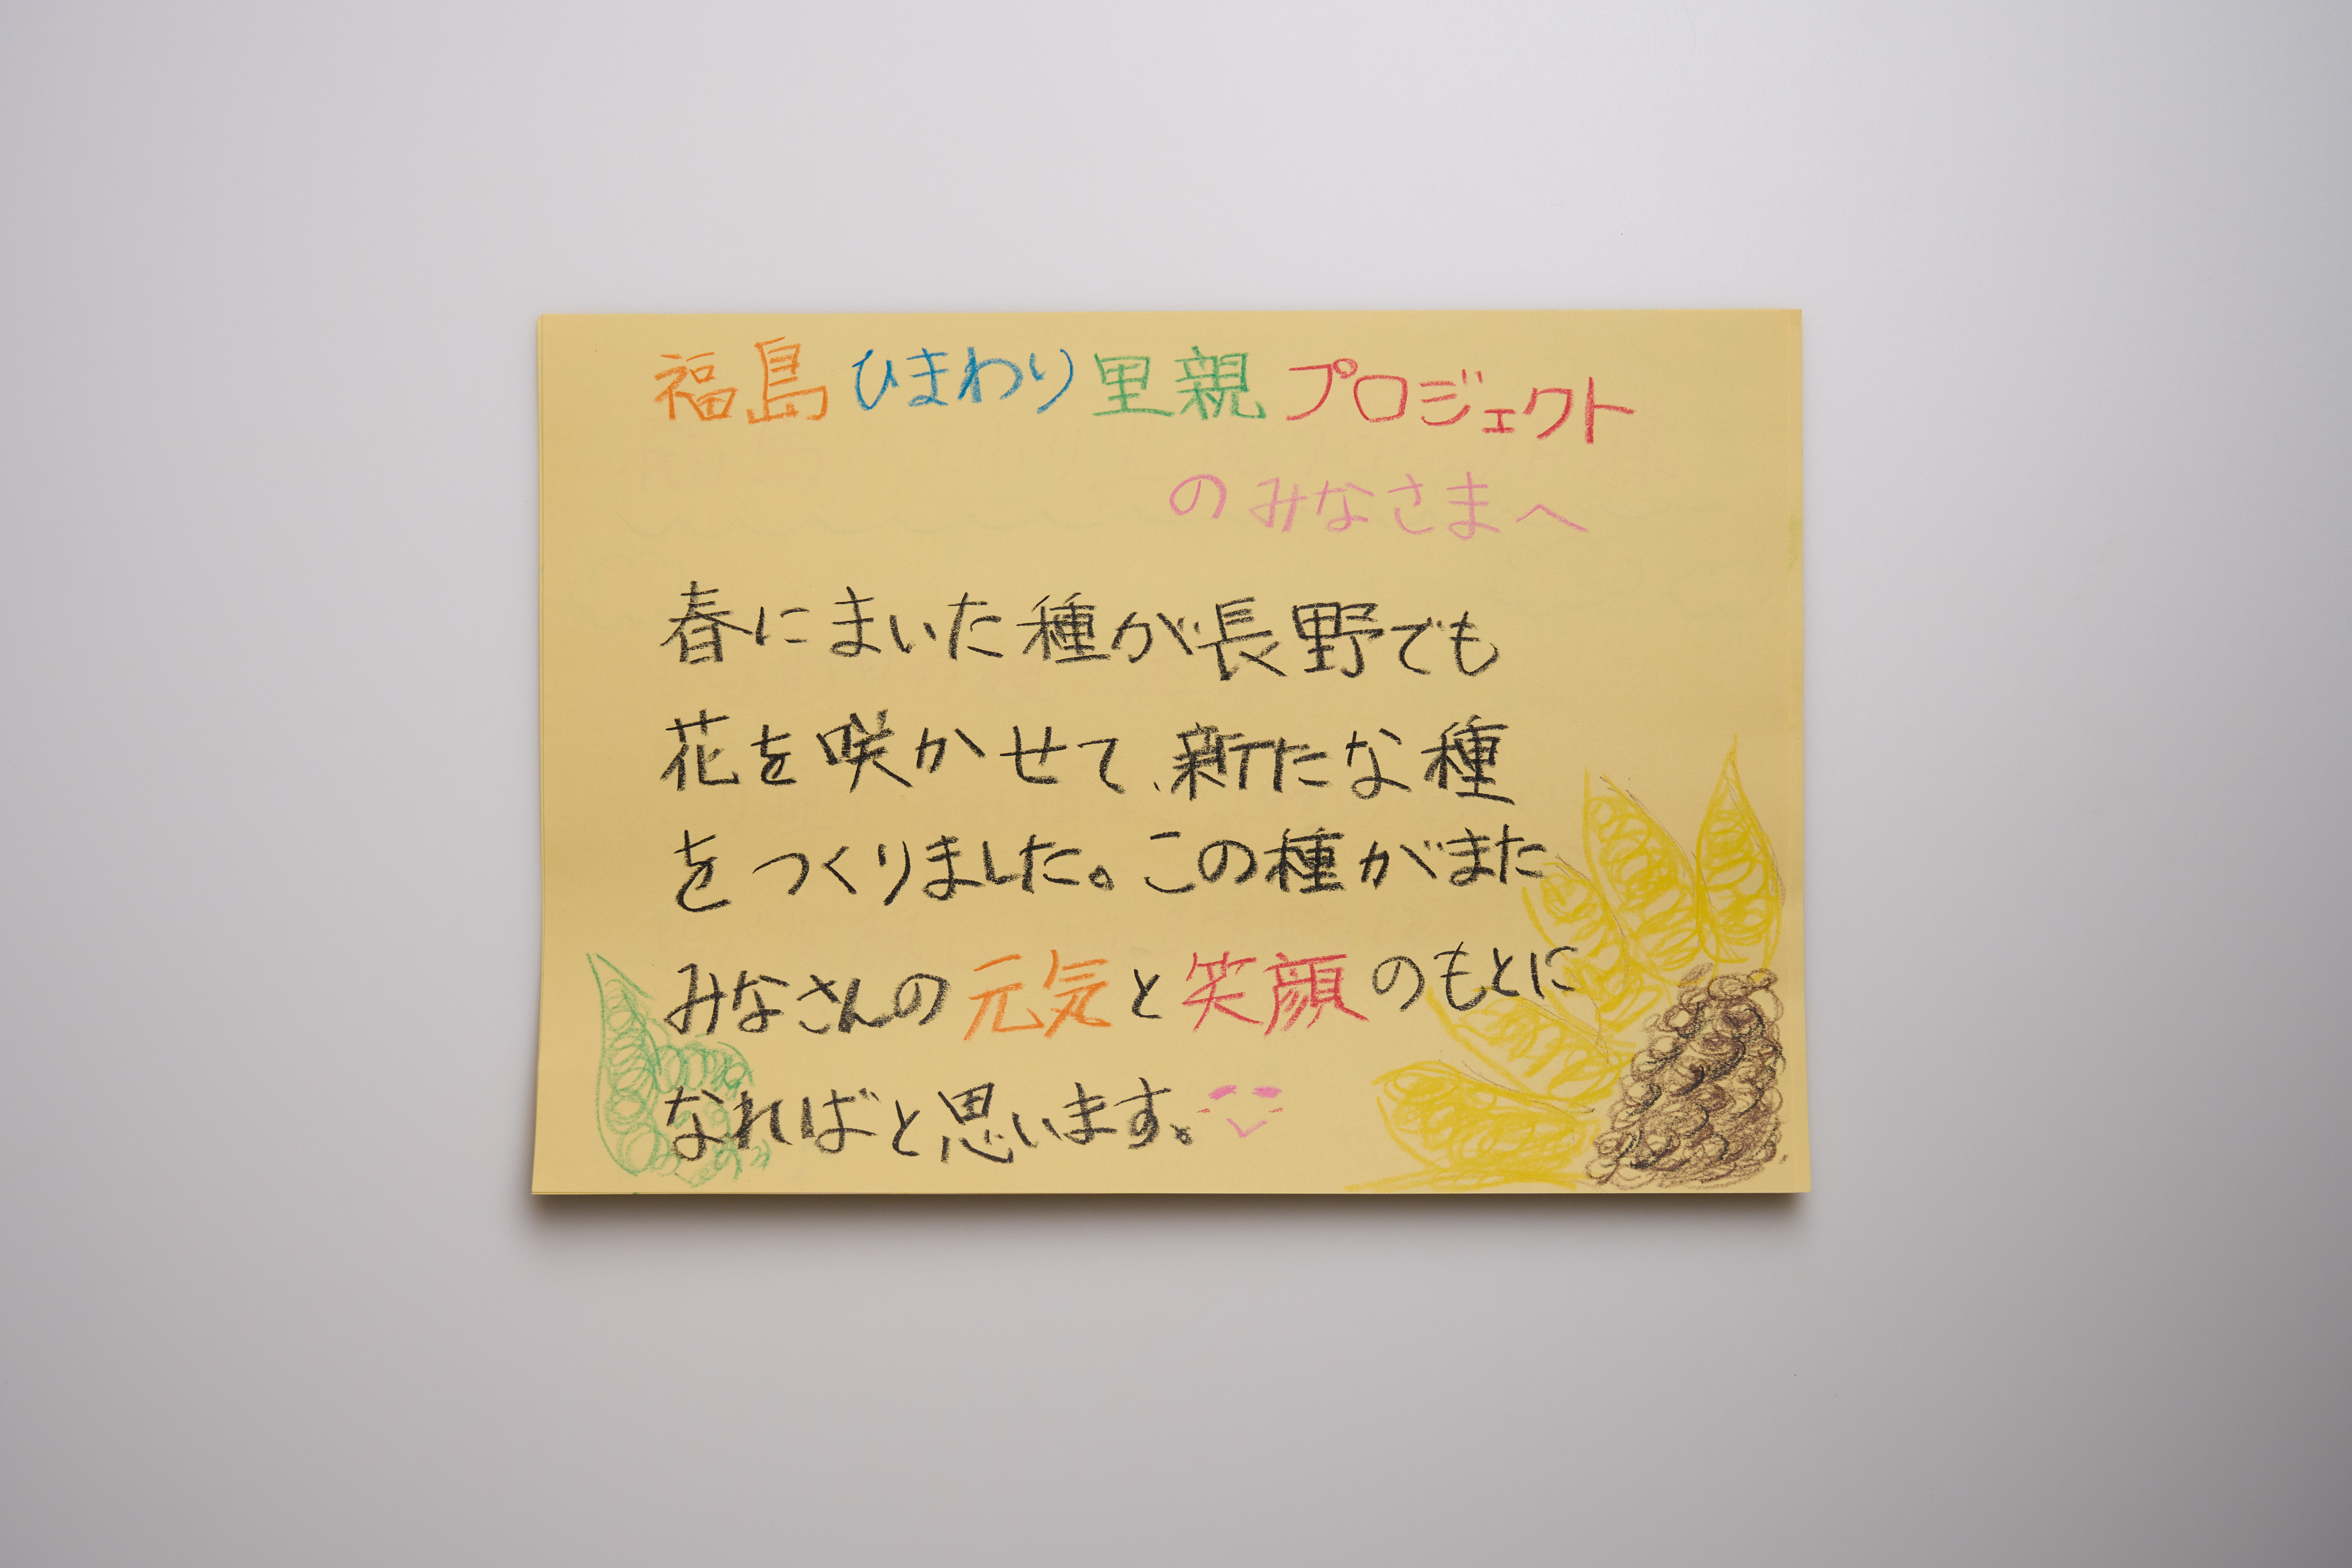 福島ひまわり里親プロジェクト
のみなさまへ
春にまいた種が長野でも
花を咲かせて、新たな種
をつくりました。この種がまた
みなさんの元気と笑顔のもとに
なればと思います。